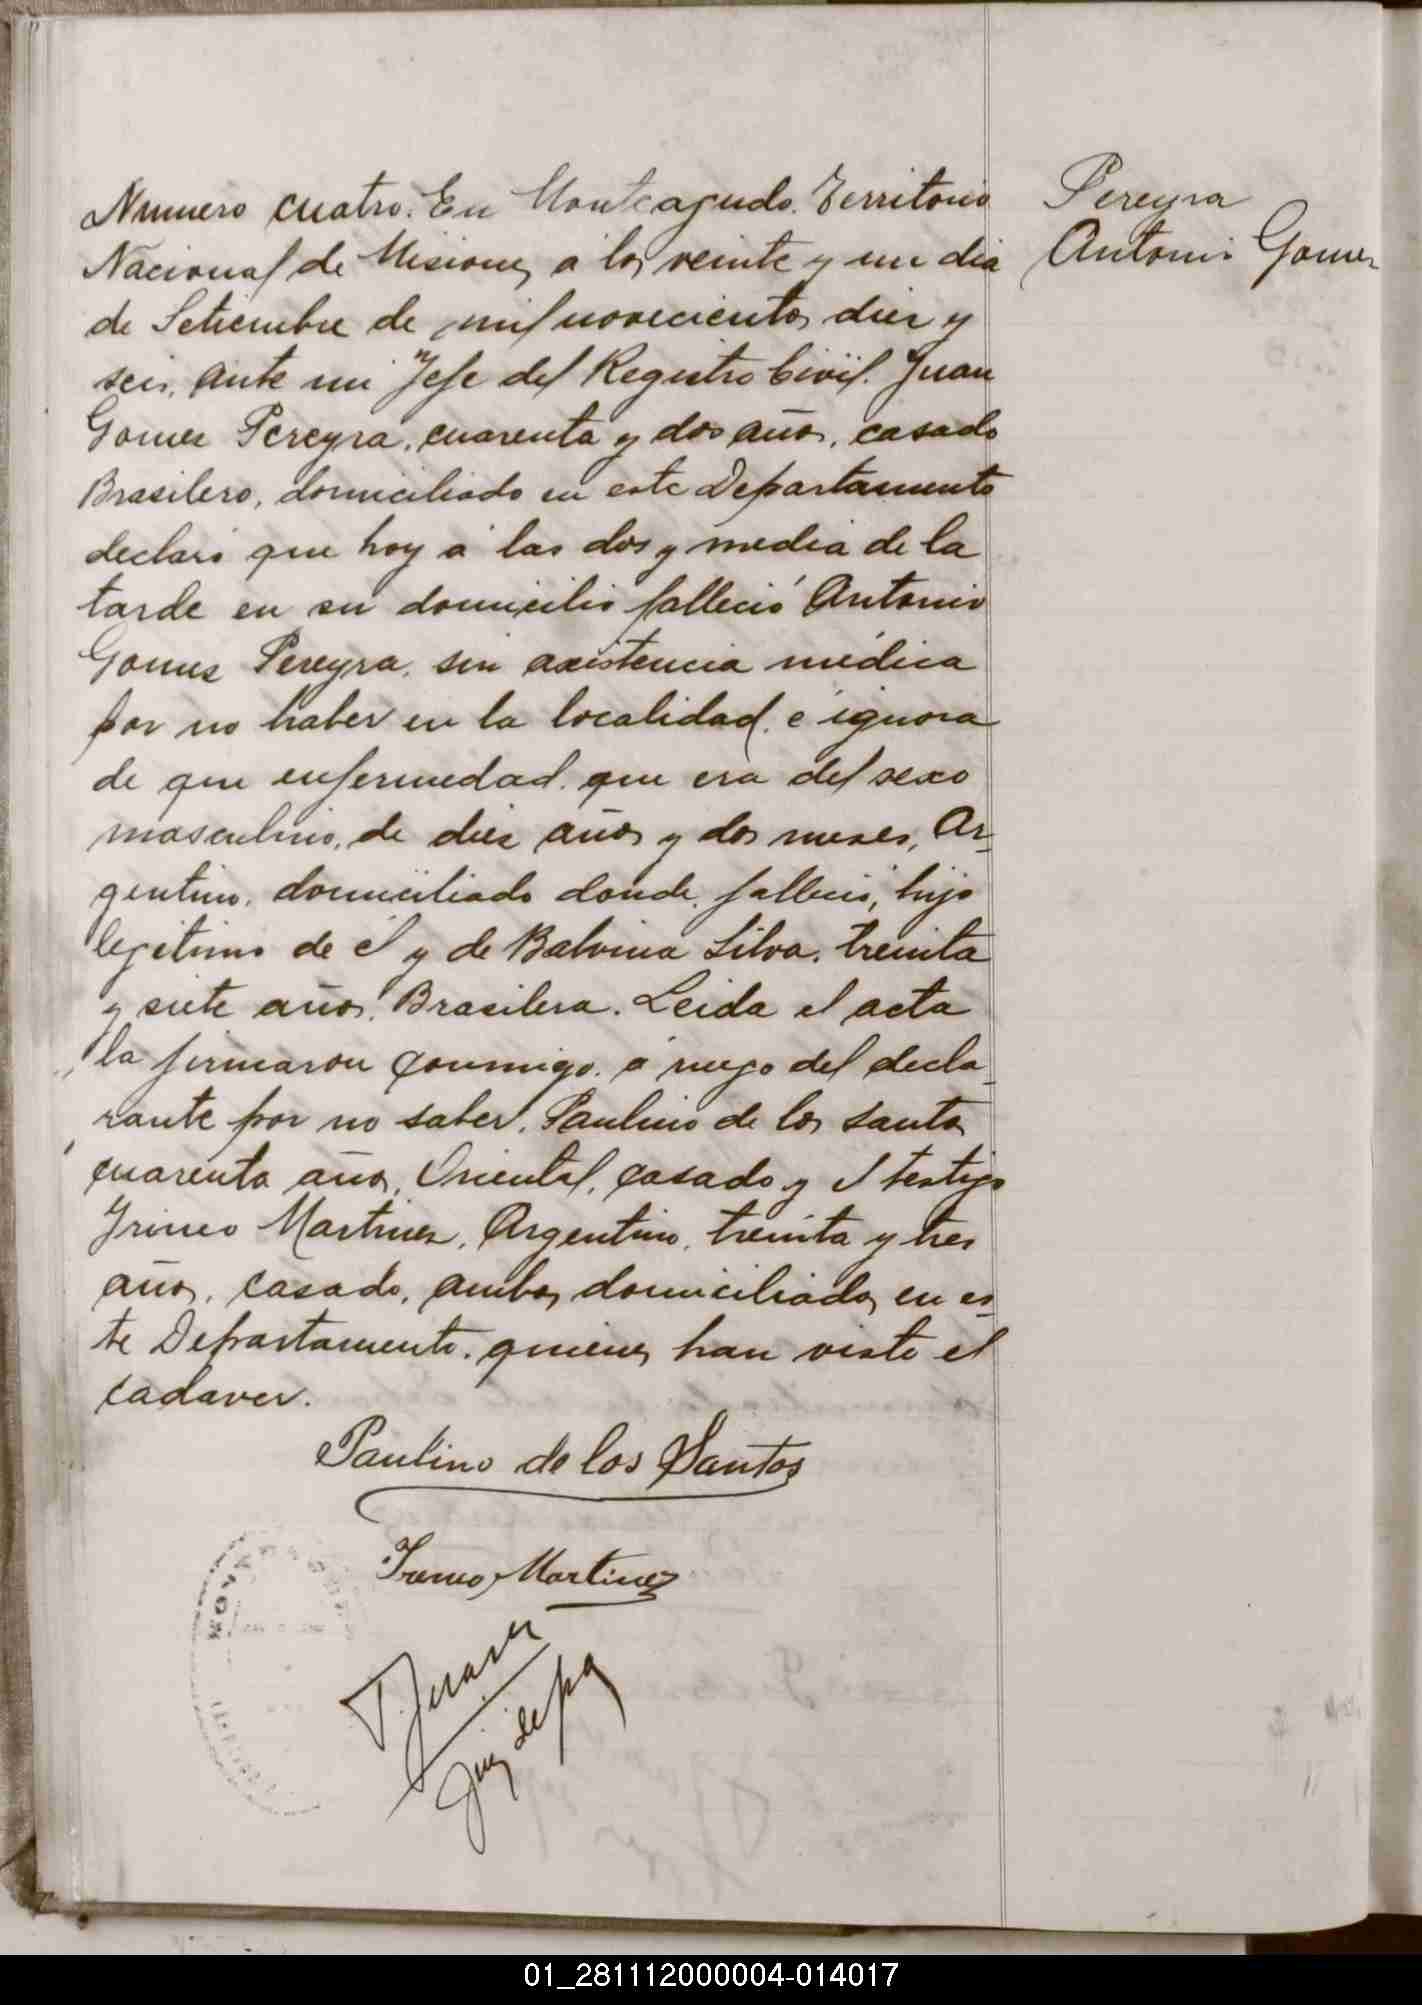 Numero cuatro. En Monteagudo. Territorio
Nacional de Misiones a los veinte y un dia
de Setiembre de mil novecientos diez y
seis, ante mi Jefe del Registro Civil. Juan
Gomez Pereyra, cuarenta y dos años, casado
Brasilero, domiciliado en este Departamento
declaró que hoy á las dos y media de la
tarde en su domicilio falleció Antonio
Gomez Pereyra, sin axistencia médica
por no haber en la localidad, e ignora
de que enfermedad, que era del sexo
masculino, de diez años y dos meses, Ar-
gentino, domiciliado donde falleció, hijo
legitimo de él y de Balvina Silva, treinta
y siete años, Brasilera. Leida el acta
la firmaron conmigo, á ruego del decla-
rante por no saber, Paulino de los Santos
cuarenta años, Oriental, casado y el testigo
Irineo Martinez, Argentino, treinta y tres
años, casado, ambos domiciliados en es-
te Departamento, quienes han visto el
cadaver.
Pereyra
Antonio Gomez
Paulino de los Santos
Irineo Martinez
Juez de paz
01_281112000004-014017